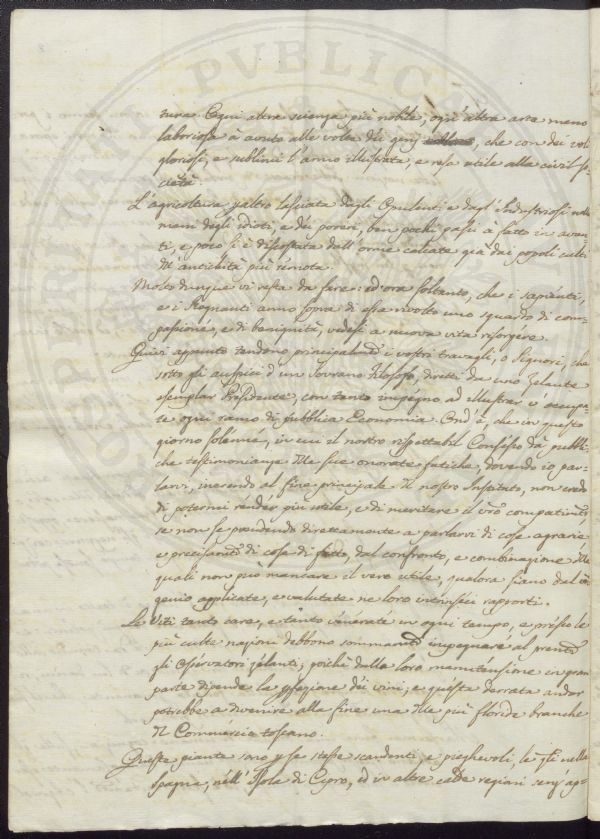 tura. Ogni altra scienza più nobile, ogni altra arte meno
laboriosa à avuto alle volte dei genj, che con dei voli
gloriosi, e sublimi l'anno illustrata, e resa utile alla civil so-
cietà.
L'agricoltura p altro lasciata dagli Opulenti e dagl'Industriosi nelle
mani degli idioti, e dei poveri, ben pochi passi à fatto in avan-
ti, e poco si è discostata dall'orme calcate già dai popoli culti
dell'antichità più remota.
Molto dunque vi resta da fare: ed ora soltanto, che i sapienti,
e i Regnanti anno sopra di essa rivolto uno sguardo di com-
passione, e di benignità, vedesi a nuova vita risorgere.
Quivi appunto tendono principalmte i vostri travagli, o Signori, che
sotto gli auspici d'un Sovrano Filosofo, diretti da uno Zelante
esemplar Presidente, con tanto impegno ad illustrar v'occupa-
te ogni ramo di pubblica Economia. Ond'è che in questo
giorno solenne, in cui il nostro rispettabil Consesso dà pubbli-
che testimonianze delle sue onorate fatiche, dovendo io par-
larvi, inerendo al fine principale del nostro Instituto, non credo
di potermi render più utile, e di meritare il vro compatimto,
se non se prendendo direttamente a parlarvi di cose agrarie
e precisamte di cose di fatto, dal confronto, e combinazione delle
quali non può mancare il vero utile, qualora siano dal in-
genio applicate, e valutate ne loro intrinseci rapporti.
Le Viti tanto care, e tanto venerate in ogni tempo, e presso le
più culte nazioni debbono sommamte impegnare al presente
gli Osservatori zelanti; poichè dalla loro manutensione in gran
parte dipende la pfezione dei vini, e questa derrata andar
potrebbe a divenire alla fine una delle più floride branche
del Commercio toscano.
Queste piante sono p se stesse scandenti, e pieghevoli, le qli nella
Spagna, nell'Isola di Cipro, ed in altre calde regioni senz'ap-